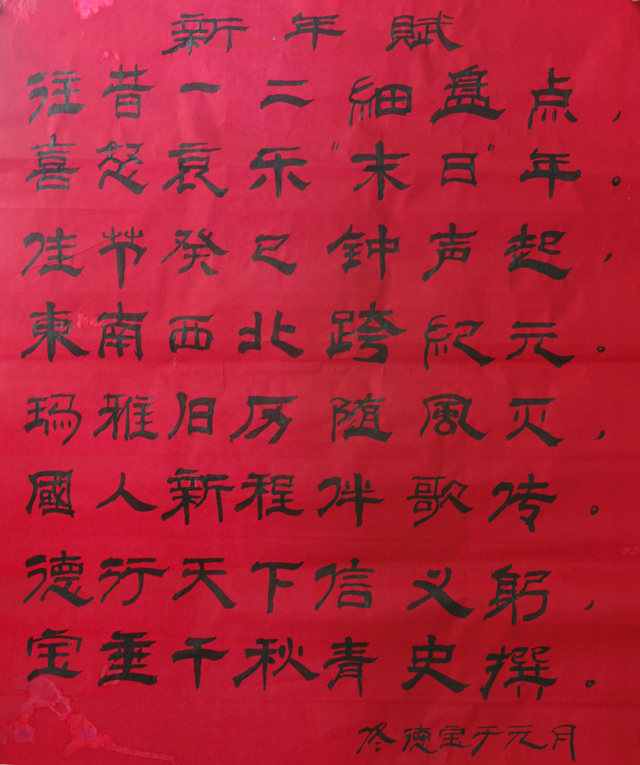 新年賦
往昔一二細盘点，
喜怒哀乐"末日"年。
佳节癸巳钟声起，
東南西北跨紀元。
玛雅旧历随風灭，
國人新程伴歌传。
德行天下信义躬，
宝垂千秋青史撰。
佟德宝于元月